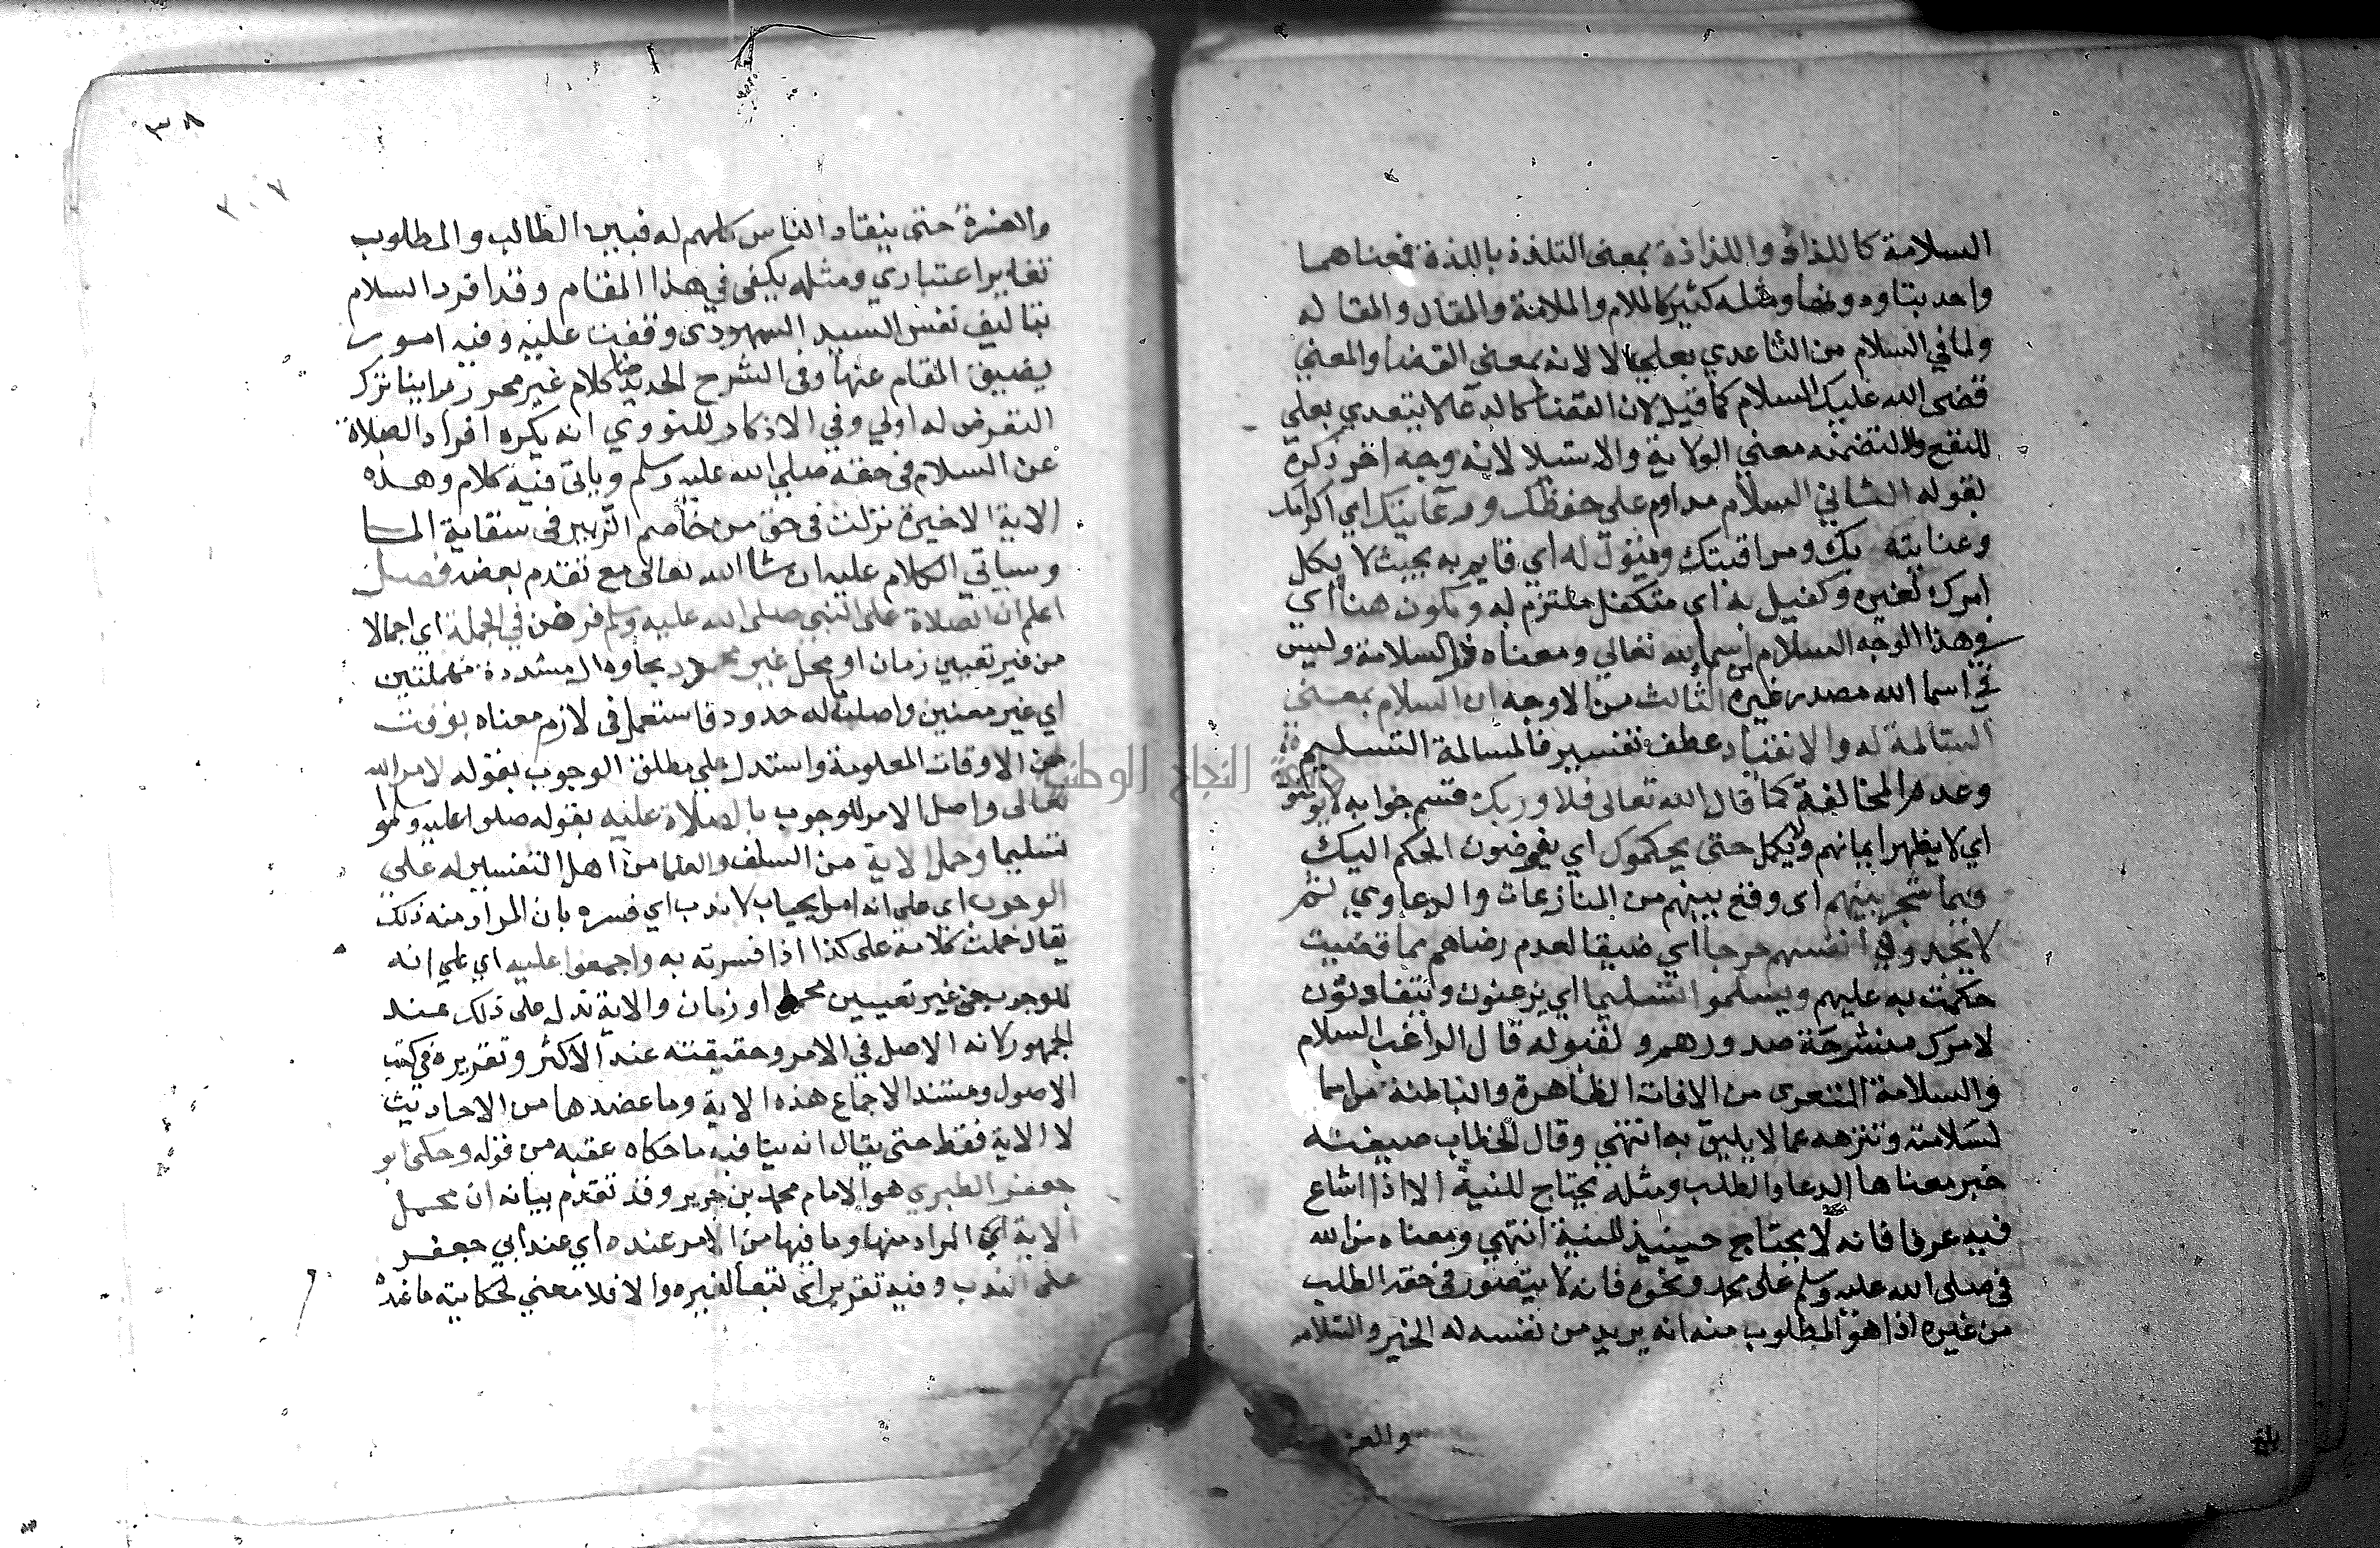 السلامة كاللذاذ واللذاذة بمعنى التلذذ باللذة فمعناهما
واحد بتاء ودونها ومثله كثير كالملام والملامة والمقال والمقاله
ولما في السلام من الثنا عدي بعلي لا لانه بمعنى القضا والمعني
قضى الله عليك السلام كما قيل لان القضا كالدعا لا يتعدي بعلي
للنفع ولا لتضمنه معني الولاية والاستيلا لانه وجه اخر ذكره
بقوله الثاني السلام مداوم علي حفظك ورعايتك اي اكرامك
وعنايته بك ومراقبتك ومتول له اي قايم به بحيث لا يكل
امرك لغيره وكفيل به اي متكفل ملتزم له ويكون هنا اي
في هذا الوجه السلام اسم الله تعالي ومعناه ذو السلامة وليس
في اسما الله مصدر غيره الثالث من الاوجه ان السلام بمعنى
المسالمة له والانقياد عطف تفسير فالمسالمة التسليم
وعدم المخالفة كما قال الله تعالى فلا وربك قسم جوابه لا يؤمنون
اي لا يظهر ايمانهم ولا يكمل حتى يحكموك اي يفوضون الحكم اليك
فيما شجر بينهم اى وقع بينهم من المنازعات والدعاوي ثم
لا يجدوا في انفسهم حرجا اي ضيقا لعدم رضاهم مما قضيت
حكمت به عليهم ويسلموا تسليما اي يذعنون وينقادون
لامرك منشرحة صدورهم ولقبوله قال الراغب السلام
والسلامة التعرى من الافات الظاهرة والباطنة
لسلامته وتنزهه عما لا يليق به انتهي وقال الخطاب صيغته
خبر معناها الدعا والطلب ومثله يحتاج للنية الا اذا شاع
فيه عرفا فانه لا يحتاج حينيذ للنية انتهي ومعناه من الله
في صلى الله عليه وسلم على محمد ونحوه فانه لا يتصور في حقه الطلب
من غيره اذ هو المطلوب منه انه يريد من نفسه له الخير والسلامه
٣٨
٢٠٧
والعزة حتى ينقاد الناس كلهم له فبين الطالب والمطلوب
تغاير اعتباري ومثله يكفى في هذا المقام وقد افرد السلام
بتاليف نفس السيد السمهودى وقفت عليه وفيه امور
يضيق المقام عنها وفى الشرح الجديد هنا كلام غير محرر راينا ترك
التعرض له اولي وفي الاذكار للنووي انه يكره افراد الصلاة
عن السلام في حقه صلي الله عليه وسلم وياتى فيه كلام وهذه
الاية الاخيرة نزلت في حق من خاصم الزبير في سقاية الما
وسياتي الكلام عليه ان شا الله تعالى مع تقدم بعضه فصل
اعلم ان الصلاة على النبي صلى الله عليه وسلم فرض في الجملة اي اجمالا
من غير تعيين زمان او محل غير محدد بحا ودال مشددة مهملتين
اي غير معين واصله ماله حدود فاستعمل في لازم معناه بوقت
من الاوقات المعلومة واستدل علي مطلق الوجوب بقوله لامر الله
تعالى واصل الامر للوجوب بالصلاة عليه بقوله صلوا عليه وسلموا
تسليما وحمل الاية من السلف والعلما من اهل التفسير له علي
الوجوب اى على انه امر ايجاب لا ندب اي فسره بان المراد منه ذلك
يقال حملت كلامه على كذا اذا فسرته به واجمعوا عليه اي علي انه
للوجوب من غير تعيين محل او زمان والاية تدل على ذلك عند
الجمهور كانه الاصل في الامر وحقيقته عند الاكثر وتقريره في كتب
الاصول ومستند الاجماع هذه الاية وما عضدها من الاحاديث
لا الاية فقط حتى يقال انه ينافيه ما حكاه عقبه من قوله وحكى ابو
جعفر الطبري هو الامام محمد بن جرير وقد تقدم بيانه ان محمل
الاية اي المراد منها وما فيها من الامر عنده اي عند ابي جعفر
على الندب وفيه تقدير اى تبعا لغيره والا فلا معني لحكاية ما عنده